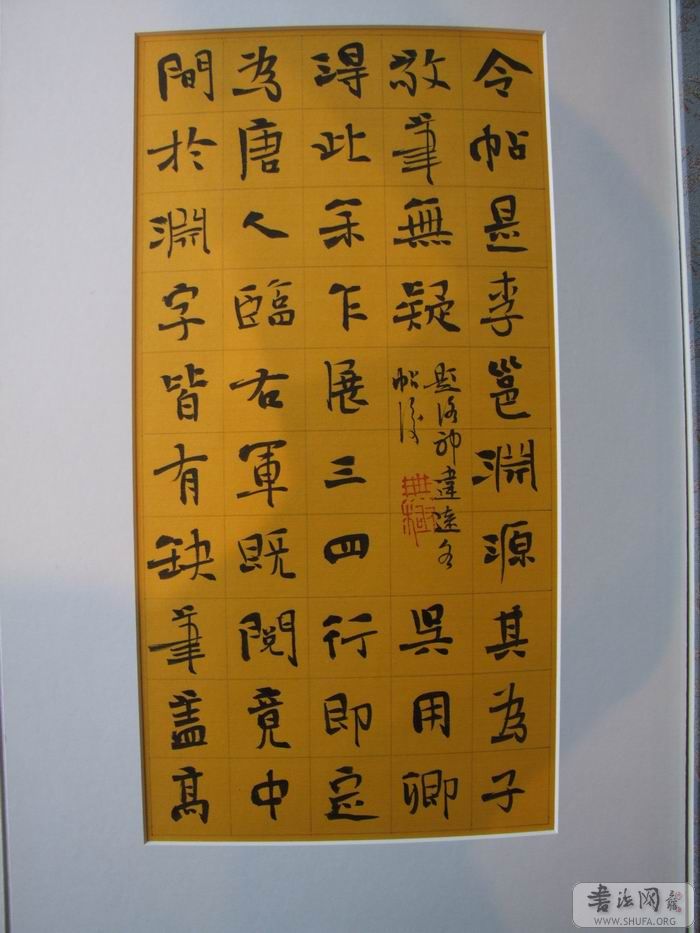 令帖是李邕淵源其為子
敬筆無疑
題洛神違遠各
帖後
吳用卿
得此余乍展三四行即定
為唐人臨右軍既閱竟中
間於淵字皆有缺筆盖高
书法网
WWW.SHUFA.ORG